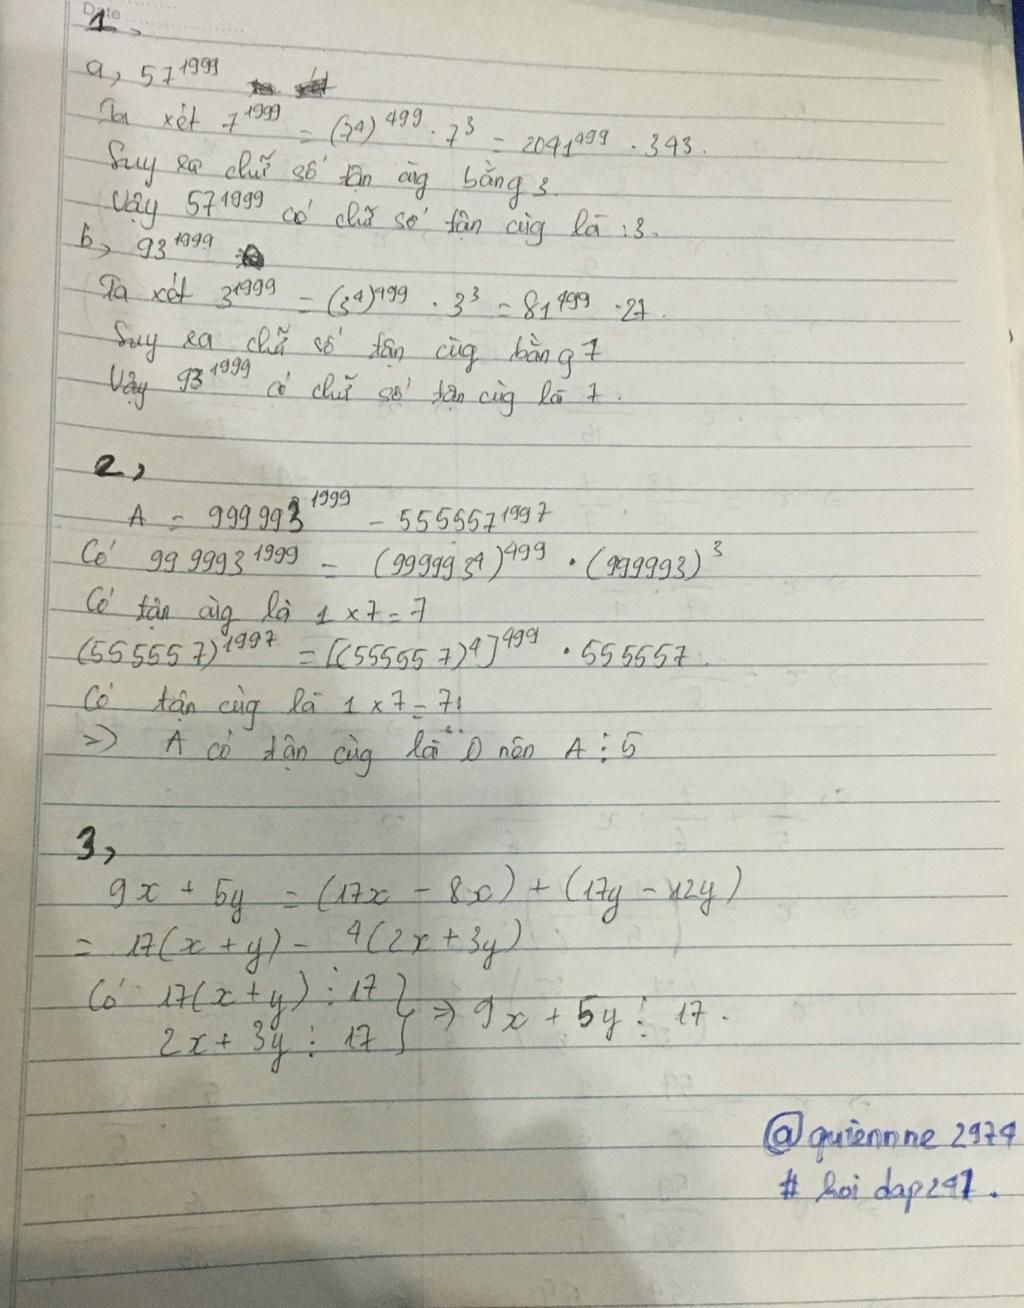 Date
1,
a, 57^1999
Ta xét 7^1999 = (7^4)^499 . 7^3 = 2041^499 . 343.
Suy ra chữ số tận cùg bằng 3.
Vậy 57^1999 có chữ số tận cùg là : 3.
b, 93^1999
Ta xét 3^1999 = (3^4)^499 . 3^3 = 81^499 . 27.
Suy ra chữ số tận cùg bằng 7
Vậy 93^1999 có chữ số tận cùg là 7.
2,
A = 999993^1999 - 555557^1997
Có 999993^1999 = (999993^4)^499 . (999993)^3
Có tận cùg là 1 x 7 = 7
(555557)^1997 = [(555557)^4]^499 . 555557.
Có tận cùg là 1 x 7 = 7.
=> A có tận cùg là 0 nên A ⋮ 5
3,
9x + 5y = (17x - 8x) + (17y - 12y)
= 17(x + y) - 4(2x + 3y)
Có 17(x+y) ⋮ 17 } => 9x + 5y ⋮ 17.
2x + 3y ⋮ 17
@quiennne2974
# hoi dap247.